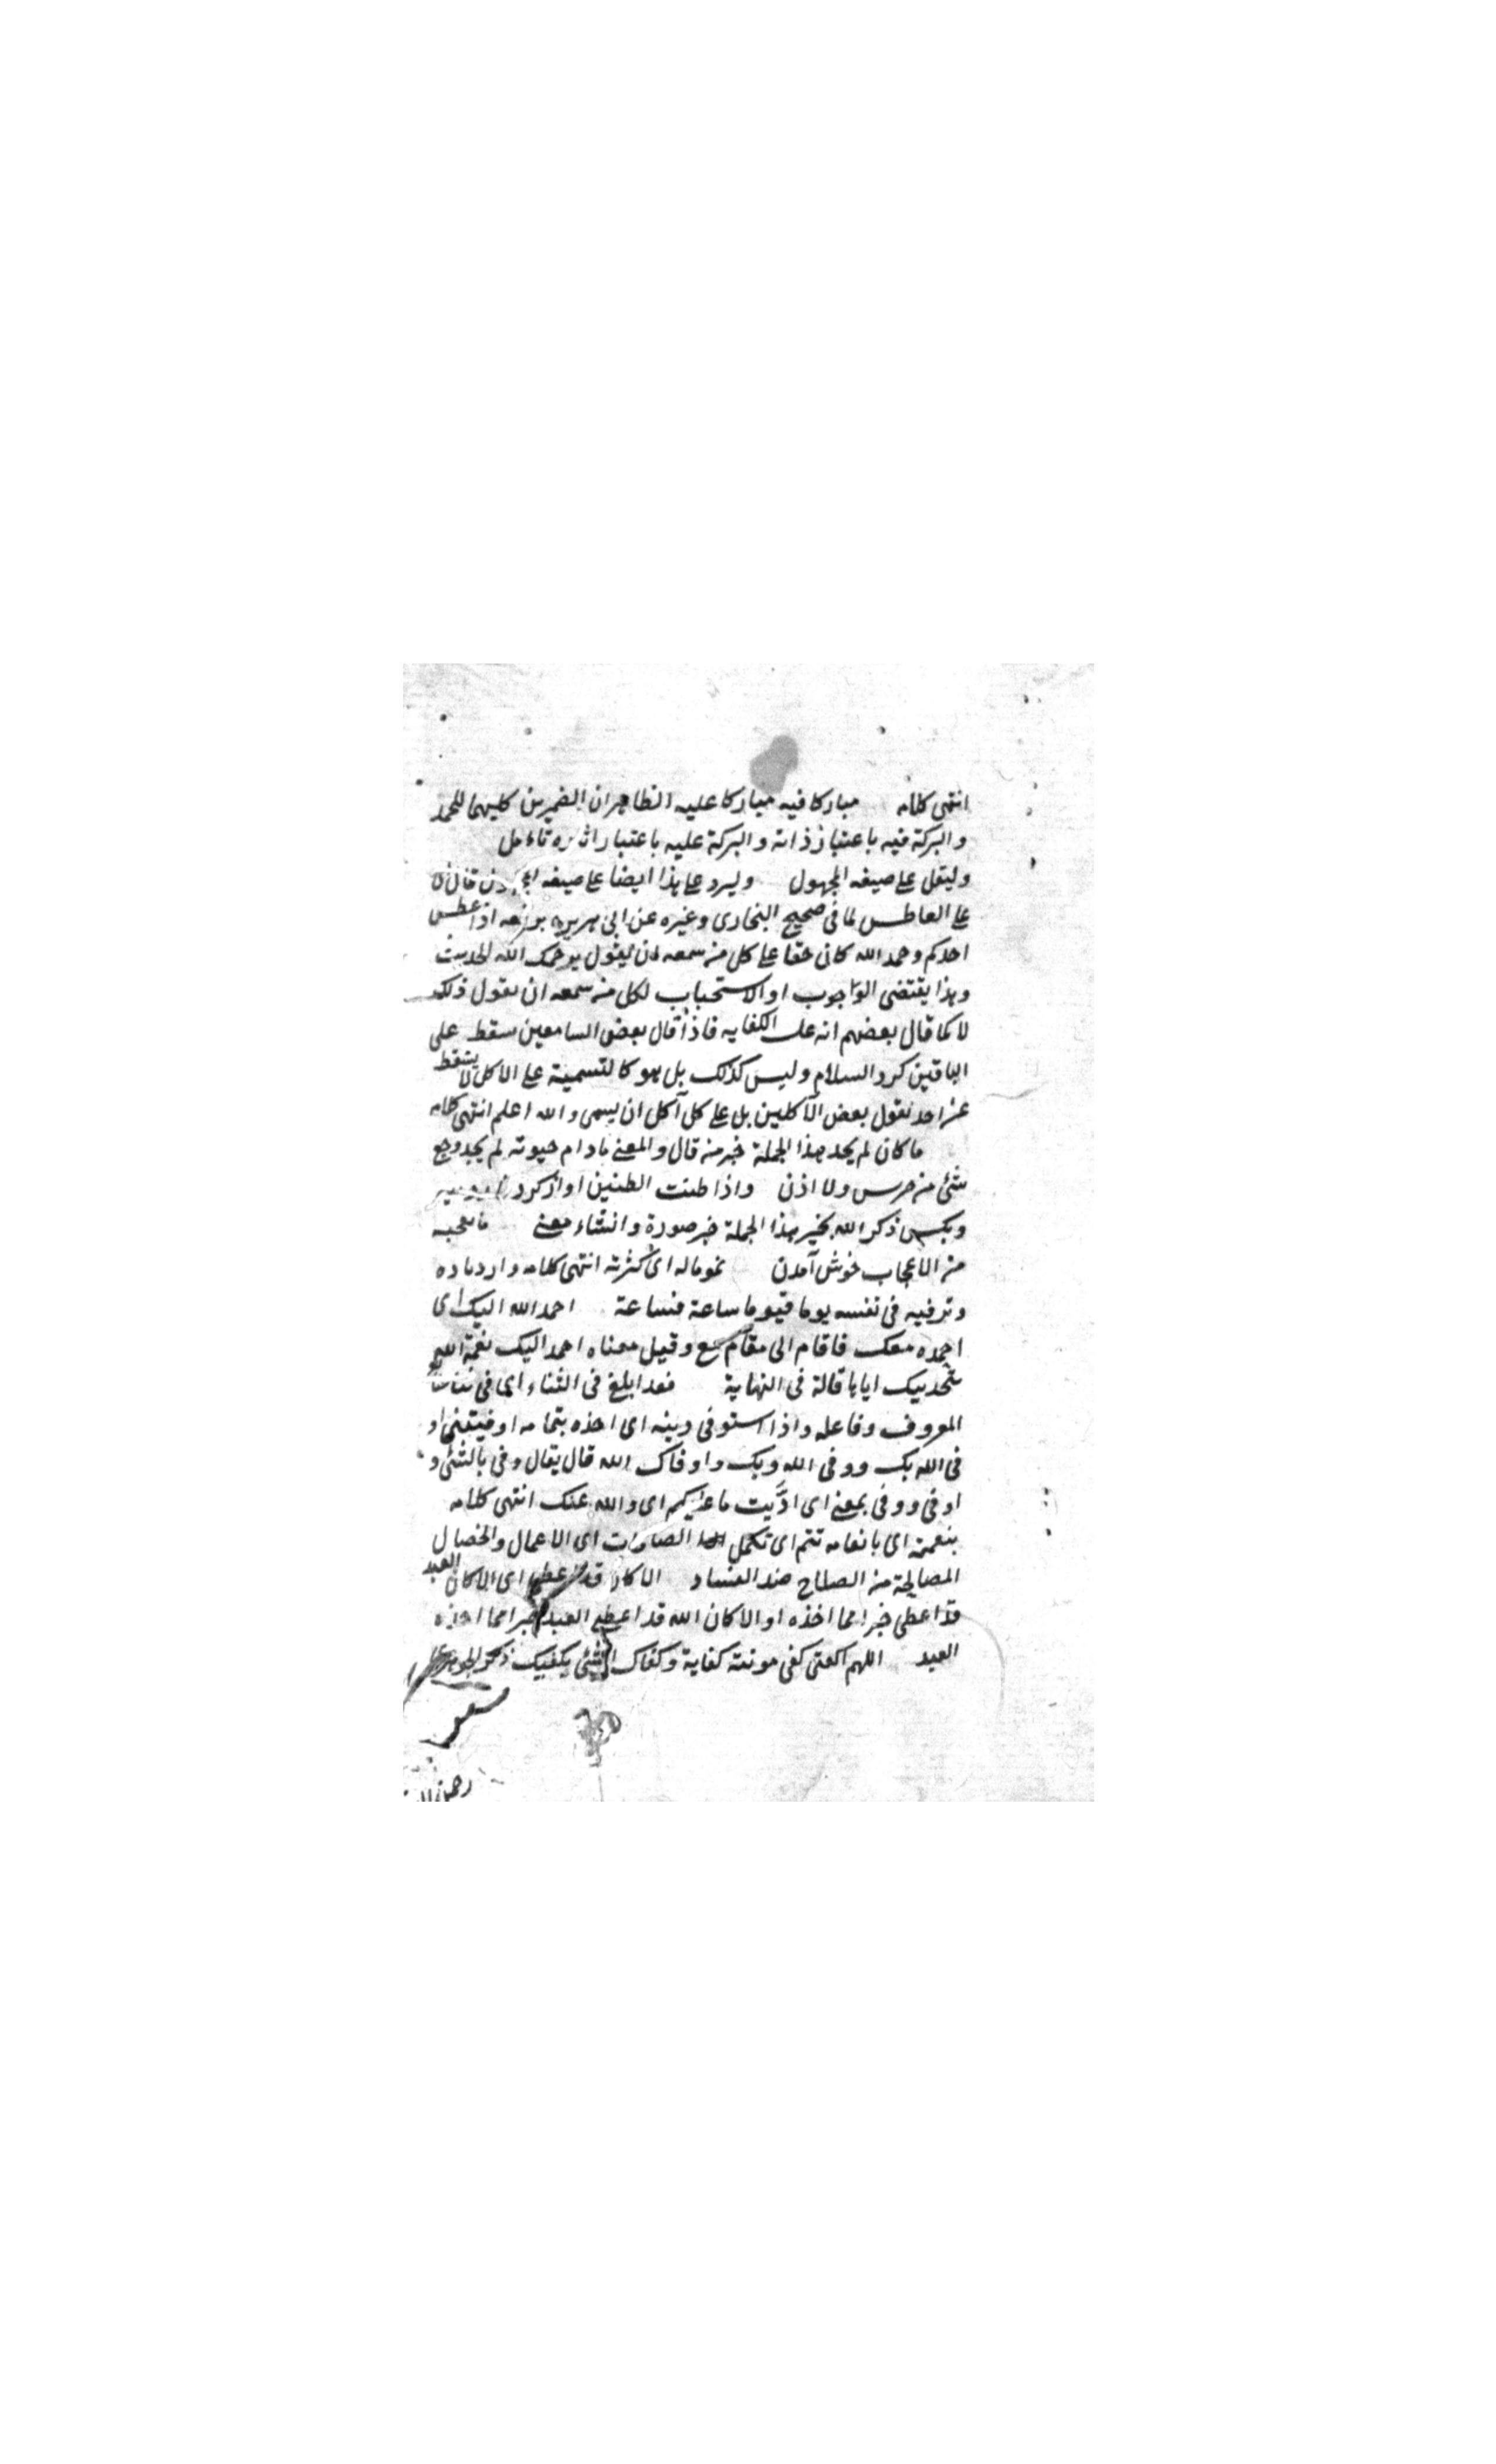 انتهى كلامه مباركا فيه مباركا عليه الظاهر ان الضميرين كليهما للحمد
والبركة فيه باعتبار ذاته والبركة عليه باعتبار اثاره تاءمل
وليقل على صيغه المجهول وليرد على هذا ايضا على صيغه قال
على العاطس لما في صحيح البخاري وغيره عن ابي هريره يرفعه اذا عطس
احدكم وحمد الله كان حقا على كل من سمعه ان يقول يرحمك الله الحديث
وهذا يقتضى الواجوب او الاستحباب لكل من سمعه ان يقول ذلك
لا كما قال بعضهم انه على الكفايه فاذا قال بعض السامعين سقط على
الباقين كرد السلام وليس كذلك بل هو كالتسمية على الاكل لا يسقط
عن احد بقول بعض الآكلين بل على كل آكل ان يسمى والله اعلم انتهى كلامه
ما كان لم يجد هذا الجملة خبر من قال والمعنى مادام حيوته لم يجد وجع
شئ من ضرس ولا اذن واذا طنت الطنين اواز كردن
ذكر الله بخير هذا الجملة خبر صورة وانشاء معنى ما يعجبه
من الاعجاب خوش آمدن نمو ماله اى كثرته انتهى كلامه وازدياده
وترفيه في نفسه يوما فيوما ساعة فساعة احمد الله اليك اى
احمده معك فاقام الى مقام مع وقيل معناه احمد اليك نعمة الله
بتحديثك اياها قالة في النهاية فقد ابلغ في الثناء اى في
المعروف وفاعله واذا استوفى دينه اى اخذه بتمامه اوفيتنى او
في الله بك ووفى الله وبك واوفاك الله قال يقال وفى بالشئ و
اوفى ووفى بمعنى اى ادّيت ما عليكم اى والله عنك انتهى كلامه
بنعمته اى بانعامه تتم اى تكمل الصالحات اى الاعمال والخصال
المصالحة من الصلاح ضد الفساد الا كان قد اعطى اى الا كان العبد
قد اعطى خيرا مما اخذه او الا كان الله قد اعطى العبد خيرا مما اخذه
العبد اللهم اكفنى كفى مونته كفاية وكفاك الشئ يكفيك ذكر الجوهرى